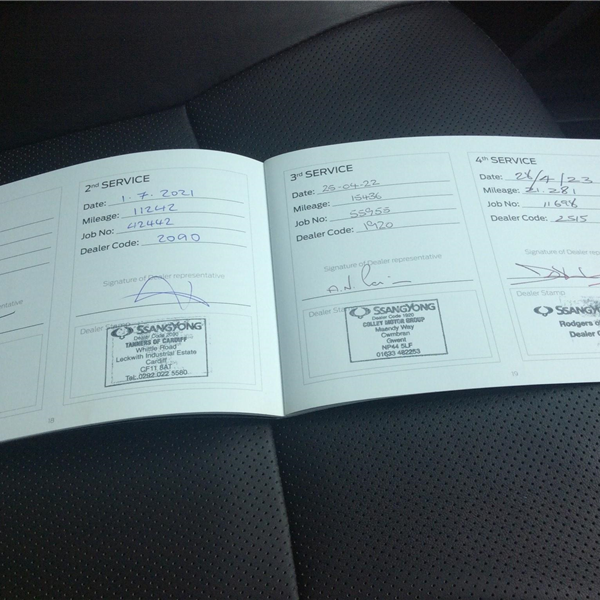 2nd SERVICE
Date: 1.7.2021
Mileage: 11242
Job No: 42442
Dealer Code: 2090
Signature of Dealer representative
Dealer Stamp
SSANGYONG
Dealer Code 2090
TANNERS OF CARDIFF
Whittle Road
Leckwith Industrial Estate
Cardiff
CF11 8AT
Tel: 0292 022 5580
18
3rd SERVICE
Date: 25-04-22
Mileage: 15436
Job No: 55955
Dealer Code: 1920
Signature of Dealer representative
Dealer Sta
SSANGYONG
Dealer Code 1920
COLLEY MOTOR GROUP
Maendy Way
Cwmbran
Gwent
NP44 5LF
01633 482253
19
4th SERVICE
Date: 26/4/23
Mileage: 21.281
Job No: 11698
Dealer Code: 2515
Signature of Dealer repres
Dealer Stamp
SSANGYO
Rodgers o
Dealer C